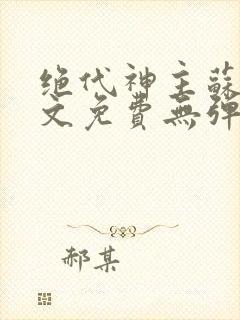 绝代神主蘇
文免費無弹
郝某